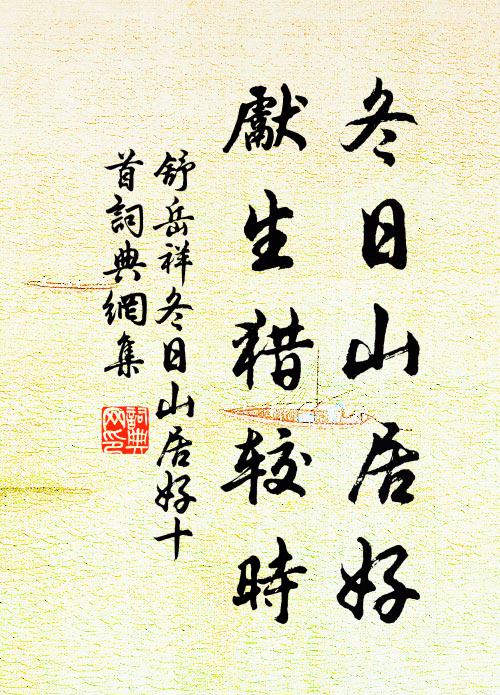 冬日山居好
獻生猎较時
舒岳祥冬日山居好十
首詞典網集
詞典
网印